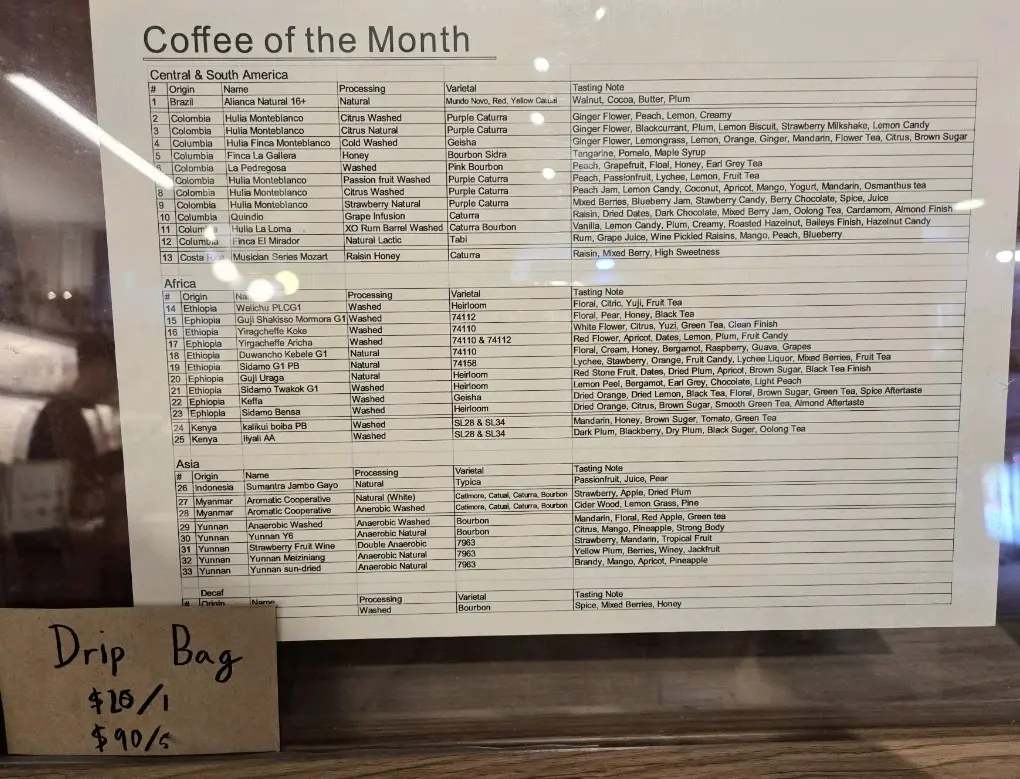 Coffee of the Month
Central & South America
# Origin Name Processing Varietal Tasting Note
1 Brazil Alianca Natural 16+ Natural Mundo Novo, Red, Yellow Walnut, Cocoa, Butter, Plum
2 Colombia Hulia Monteblanco Citrus Washed Purple Caturra Ginger Flower, Peach, Lemon, Creamy
3 Colombia Hulia Monteblanco Citrus Natural Purple Caturra Ginger Flower, Blackcurrant, Plum, Lemon Biscuit, Strawberry Milkshake, Lemon Candy
4 Columbia Hulia Finca Monteblanco Cold Washed Geisha Ginger Flower, Lemongrass, Lemon, Orange, Ginger, Mandarin, Flower Tea, Citrus, Brown Sugar
5 Colombia Finca La Gallera Honey Bourbon Sidra Tangarine, Pomelo, Maple Syrup
Colombia La Pedregosa Washed Pink Bourbon Peach, Grapefruit, Floal, Honey, Earl Grey Tea
Colombia Hulia Monteblanco Passion fruit Washed Purple Caturra Peach, Passionfruit, Lychee, Lemon, Fruit Tea
8 Colombia Hulia Monteblanco Citrus Washed Purple Caturra Peach Jam, Lemon Candy, Coconut, Apricot, Mango, Yogurt, Mandarin, Osmanthus tea
9 Colombia Hulia Monteblanco Strawberry Natural Purple Caturra Mixed Berries, Blueberry Jam, Stawberry Candy, Berry Chocolate, Spice, Juice
10 Columbia Quindio Grape Infusion Caturra Raisin, Dried Dates, Dark Chocolate, Mixed Berry Jam, Oolong Tea, Cardamom, Almond Finish
11 Hulia La Loma XO Rum Barrel Washed Caturra Bourbon Vanilla, Lemon Candy, Plum, Creamy, Roasted Hazelnut, Baileys Finish, Hazelnut Candy
12 Columbia Finca El Mirador Natural Lactic Tabi Rum, Grape Juice, Wine Pickled Raisins, Mango, Peach, Blueberry
13 Costa Musician Series Mozart Raisin Honey Caturra Raisin, Mixed Berry, High Sweetness
Africa
# Origin Processing Varietal Tasting Note
14 Ethiopia Welichu PLCG1 Washed Heirloom Floral, Citric, Yuji, Fruit Tea
15 Ephiopia Guji Shakisso Mormora G1 Washed 74112 Floral, Pear, Honey, Black Tea
16 Ethiopia Yiragcheffe Koke Washed 74110 White Flower, Citrus, Yuzi, Green Tea, Clean Finish
17 Ephiopia Yirgacheffe Aricha Washed 74110 & 74112 Red Flower, Apricot, Dates, Lemon, Plum, Fruit Candy
18 Ethiopia Duwancho Kebele G1 Natural 74110 Floral, Cream, Honey, Bergamot, Raspberry, Guava, Grapes
19 Ethiopia Sidamo G1 PB Natural 74158 Lychee, Stawberry, Orange, Fruit Candy, Lychee Liquor, Mixed Berries, Fruit Tea
20 Ephiopia Guji Uraga Natural Heirloom Red Stone Fruit, Dates, Dried Plum, Apricot, Brown Sugar, Black Tea Finish
21 Ethiopia Sidamo Twakok G1 Washed Heirloom Lemon Peel, Bergamot, Earl Grey, Chocolate, Light Peach
22 Ephiopia Keffa Washed Geisha Dried Orange, Dried Lemon, Black Tea, Floral, Brown Sugar, Green Tea, Spice Aftertaste
23 Ephiopia Sidamo Bensa Washed Heirloom Dried Orange, Citrus, Brown Sugar, Smooth Green Tea, Almond Aftertaste
24 Kenya kalikui boiba PB Washed SL28 & SL34 Mandarin, Honey, Brown Sugar, Tomato, Green Tea
25 Kenya Iiyali AA Washed SL28 & SL34 Dark Plum, Blackberry, Dry Plum, Black Sugar, Oolong Tea
Asia
# Origin Name Processing Varietal Tasting Note
26 Indonesia Sumantra Jambo Gayo Natural Typica Passionfruit, Juice, Pear
27 Myanmar Aromatic Cooperative Natural (White) Catimore, Catuai, Caturra, Bourbon Strawberry, Apple, Dried Plum
28 Myanmar Aromatic Cooperative Anerobic Washed Catimore, Catuai, Caturra, Bourbon Cider Wood, Lemon Grass, Pine
29 Yunnan Anaerobic Washed Anaerobic Washed Bourbon Mandarin, Floral, Red Apple, Green tea
30 Yunnan Yunnan Y6 Anaerobic Natural Bourbon Citrus, Mango, Pineapple, Strong Body
31 Yunnan Strawberry Fruit Wine Double Anaerobic 7963 Strawberry, Mandarin, Tropical Fruit
32 Yunnan Yunnan Meiziniang Anaerobic Natural 7963 Yellow Plum, Berries, Winey, Jackfruit
33 Yunnan Yunnan sun-dried Anaerobic Natural 7963 Brandy, Mango, Apricot, Pineapple
Decaf
# Origin Name Processing Varietal Tasting Note
Washed Bourbon Spice, Mixed Berries, Honey
Drip Bag
/1
$90/5